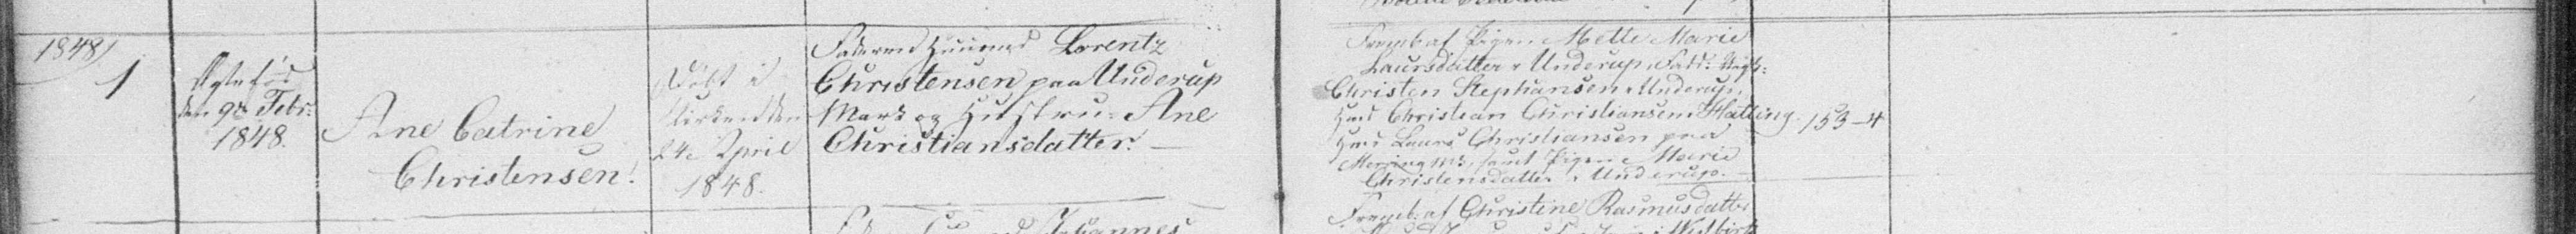 1848
1
født
den 9de Febr:
1848.
Ane Catrine
Christensen.
Døbt i
Kirken den
24e April
1848.
Faderen Huusmd Lorentz
Christensen paa Underup
Mark og Hustru: Ane
Christiansdatter. —
Fremb af Pigen Mette Marie
Laursdatter i Underup, Fadd:
Christen Stephansen i Underup,
Hmd Christian Christiansen i Hatting
Hmd Laurs Christiansen paa
samt Pigen Marie
Christensdatter i Underup. —
153-4
Fremb: af Christine Rasmusdatter
Johannes